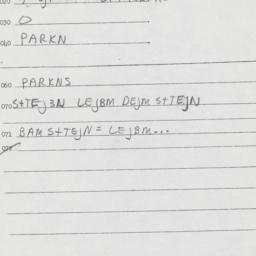 030 O
040 PARKN
060 PARKNS
070 S+TEJ3N LEJBM DEJM S+TEJN
071 BAM S+TEJN = LEJBM...